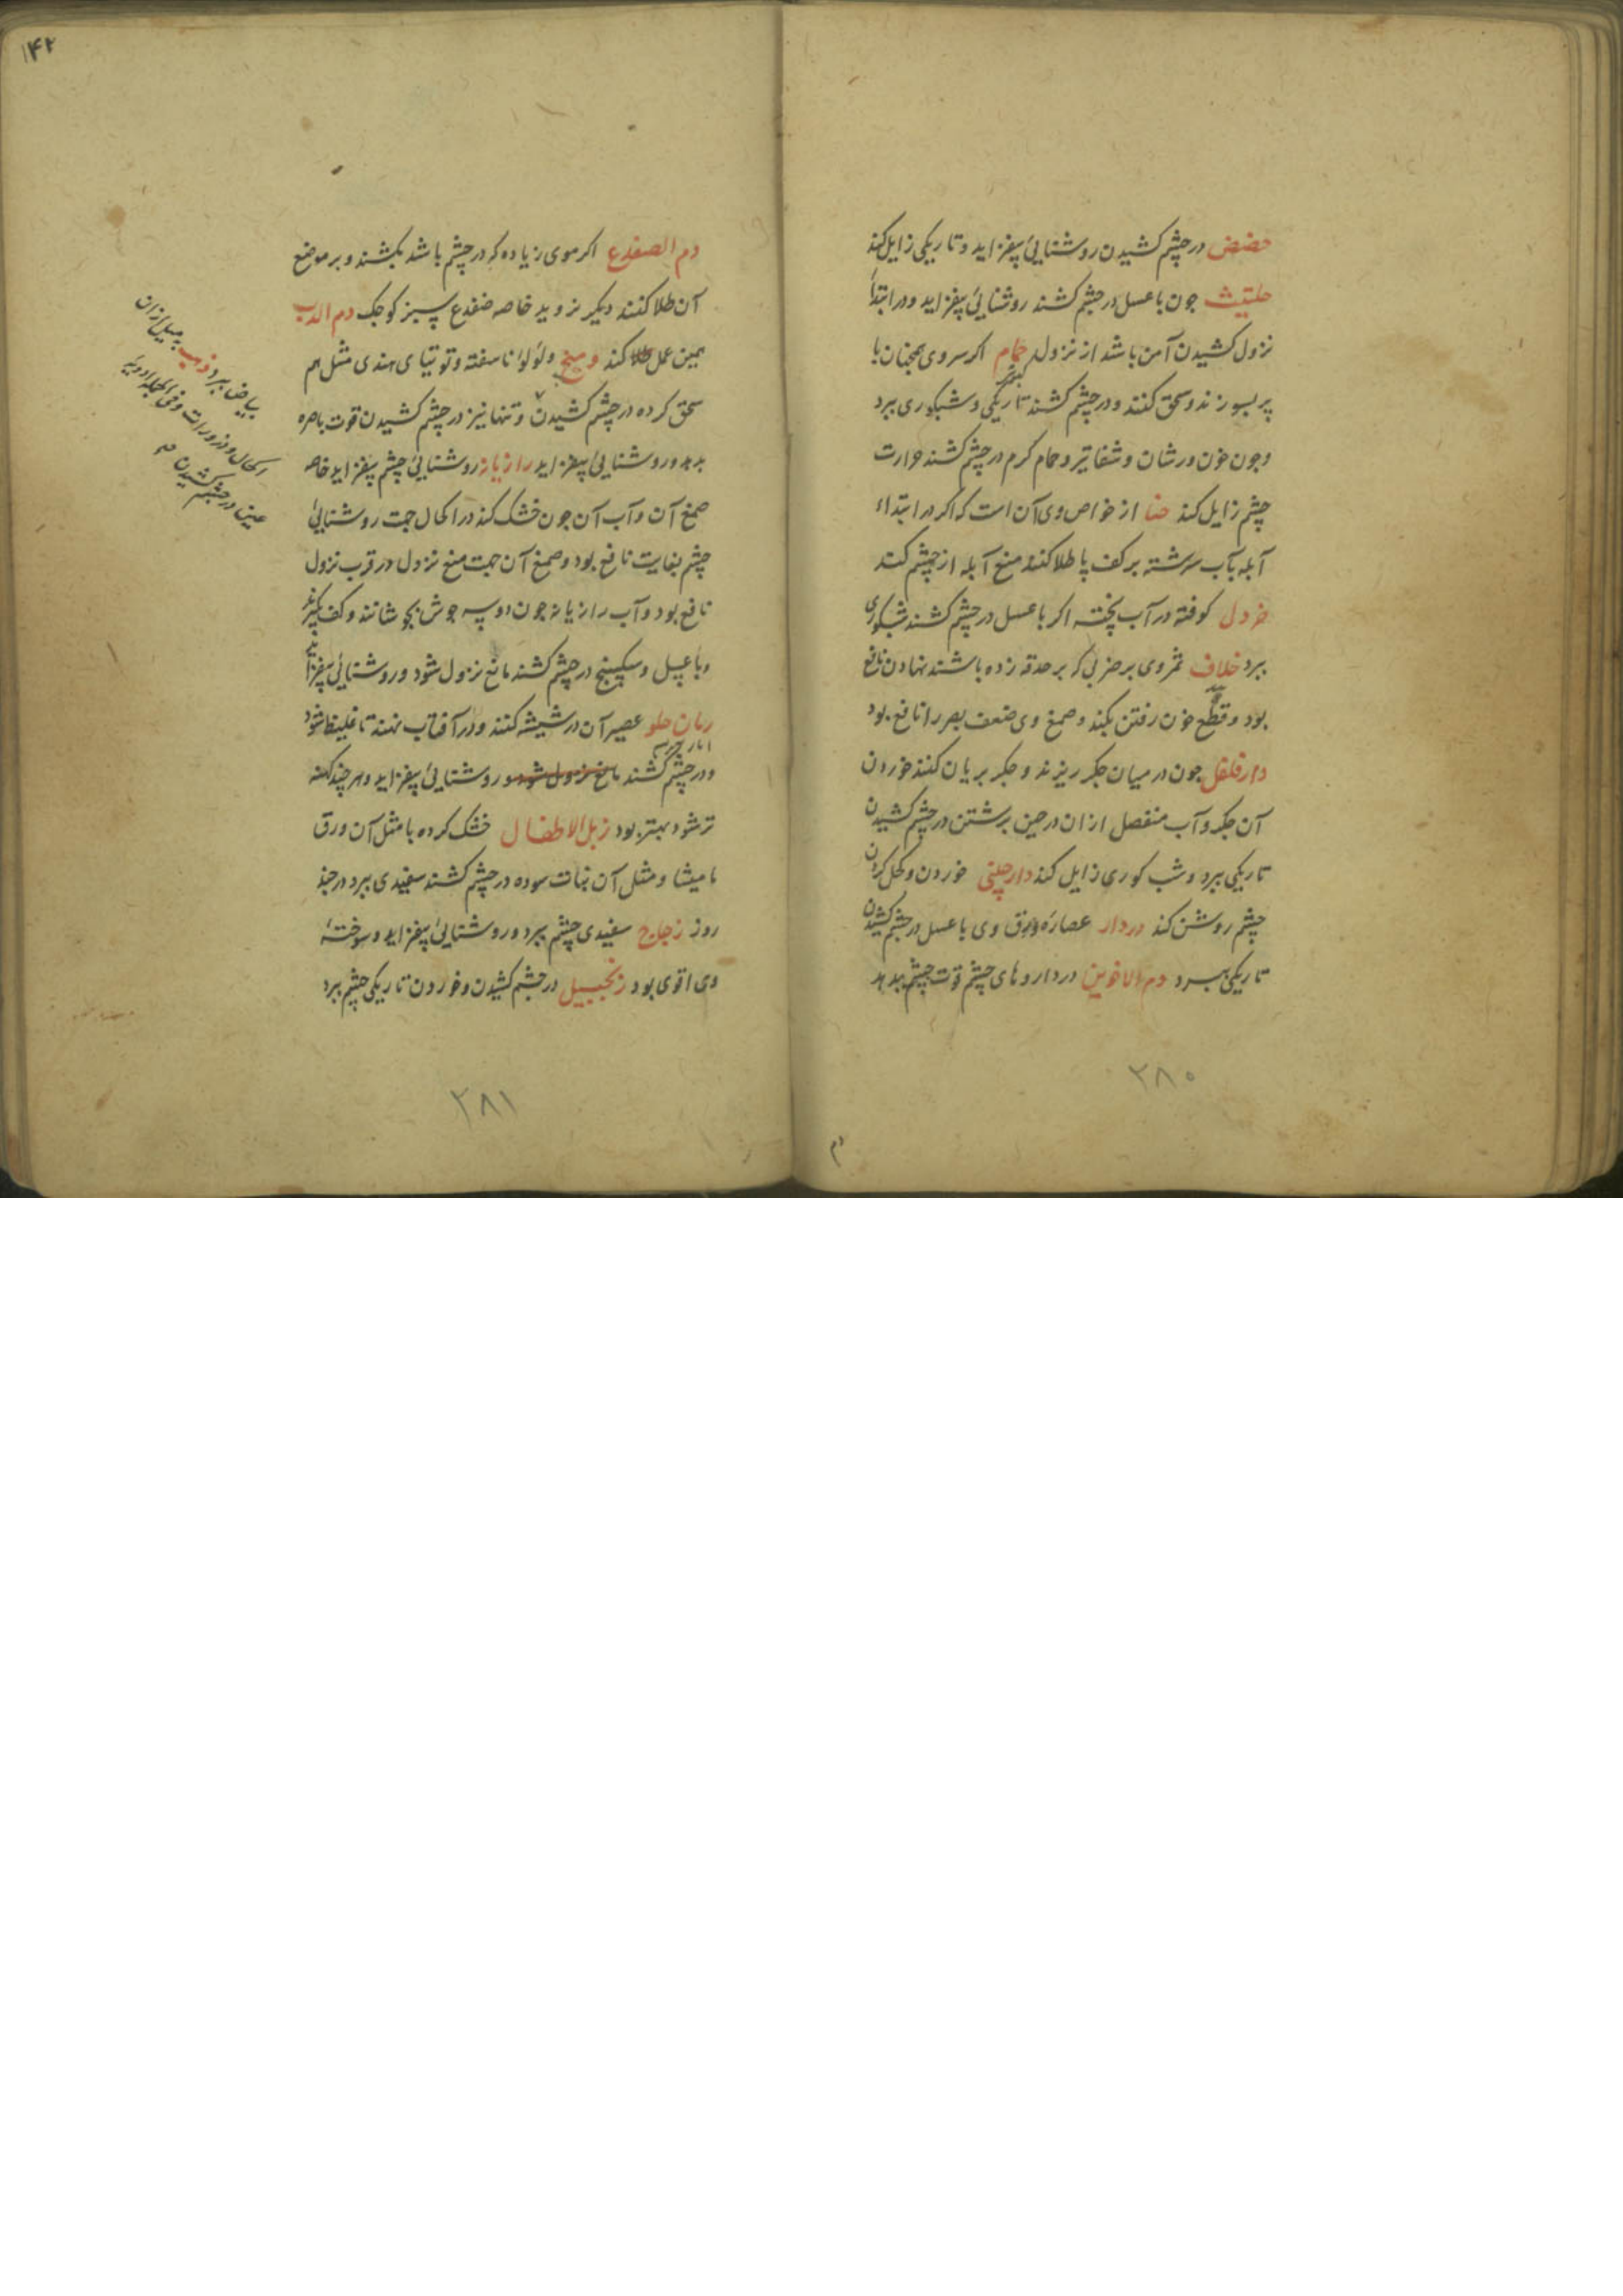 حضض در چشم کشیدن روشنایی بیفزاید و تاریکی زایل کند
حلتیت جون با عسل در چشم کشند روشنایی بیفزاید و در ابتدا
نزول کشیدن آمن باشد از نزول حمام اکر سر وی همچنان با
کبوتر
پر بسوزند و سحق کنند و در چشم کشند تاریکی و شبکوری ببرد
و جون خون ورشان و شفانیر و حمام کرم در چشم کشند حرارت
چشم زایل کند حنا از خواص وی آن است که اکر در ابتداء
آبله بآب سرشته بر کف پا طلا کنند منع آبله از چشم کند
خردل کوفته در آب پخته اکر با عسل در چشم کشند شبکوری
ببرد خلاف ثمر وی بر ضربی که بر حدقه زده باشند نهادن نافع
بود و قطع خون رفتن بکند و صمغ وی ضعف بصر را نافع بود
دارفلفل جون در میان جکر ریزند و جکر بریان کنند خوردن
آن جکر و آب منفصل از ان در حین برشتن در چشم کشیدن
تاریکی ببرد و شب کوری زایل کند دارچینی خوردن و کحل کردن
چشم روشن کند دردار عصاره ورق وی با عسل در چشم کشیدن
تاریکی ببرد دم الاخوین در داروهای چشم قوت چشم بدهد
۲۸۰
دم
۱۴۲
دم الضفدع اکر موی زیاده که در چشم باشد بکشند و بر موضع
آن طلا کنند دیکر نروید خاصه ضفدع سبز کوجک دم الدب
همین عمل کند و لؤلؤ ناسفته و توتیای هندی مثل هم
سحق کرده در چشم کشیدن و تنها نیز در چشم کشیدن قوت باصره
بدهد و روشنایی بیفزاید رازیانه روشنایی چشم بیفزاید خاصه
صمغ آن و آب آن جون خشک کند در اکحال جهت روشنایی
چشم بغایت نافع بود و صمغ آن جهت منع نزول در قرب نزول
نافع بود و آب رازیانه جون دو سه جوش بجوشانند و کف بکیرند
و با عسل و سکبینج در چشم کشند مانع نزول شود و روشنایی بیفزاید
رمان حلو عصیر آن در شیشه کنند و در آفتاب نهند تا غلیظ شود
و در چشم کشند مانع نزول شود و روشنایی بیفزاید و هر چند کهنه
تر شود بهتر بود زبل الاطفال خشک کرده با مثل آن ورق
مامیثا و مثل آن نبات سوده در چشم کشند سفیدی ببرد در چند
روز زجاج سفیدی چشم ببرد و روشنایی بیفزاید و سوختهٔ
وی اقوی بود زنجبیل در چشم کشیدن و خوردن تاریکی چشم ببرد
بیاض ببرد ذهب میل از ان
اکحال و ذرورات و فی الجمله ادویه
عین در چشم کشیدن
۲۸۱